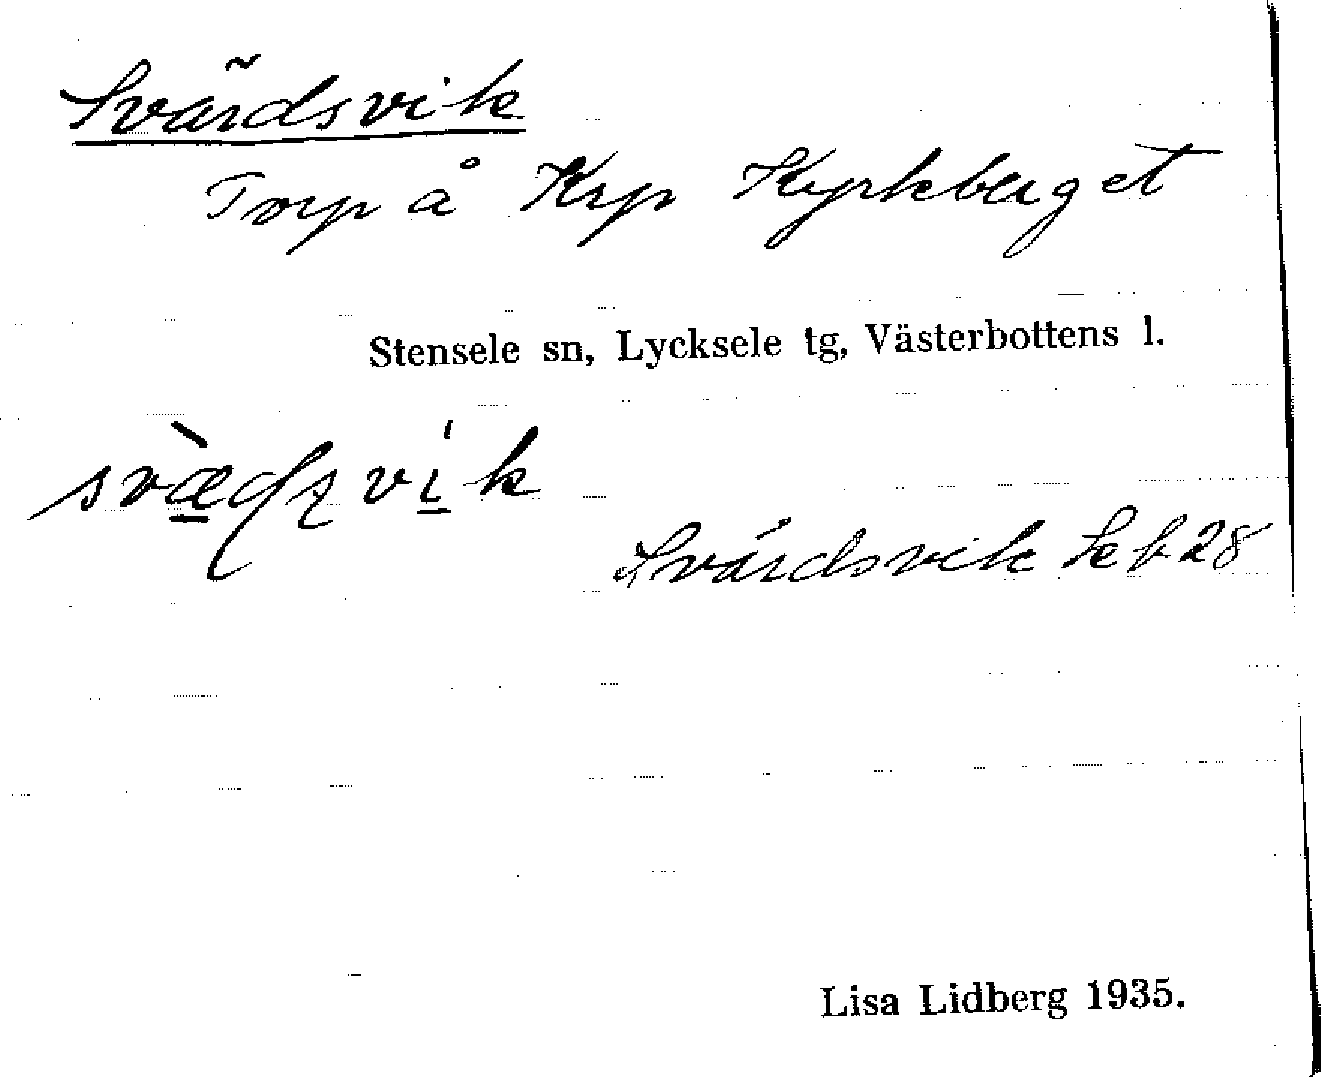 Svärdsvik
Torp å Krp Kyrkberget
Stensele sn, Lycksele tg, Västerbottens l.
Svärdsvik Jeb 28
Lisa Lidberg 1935.